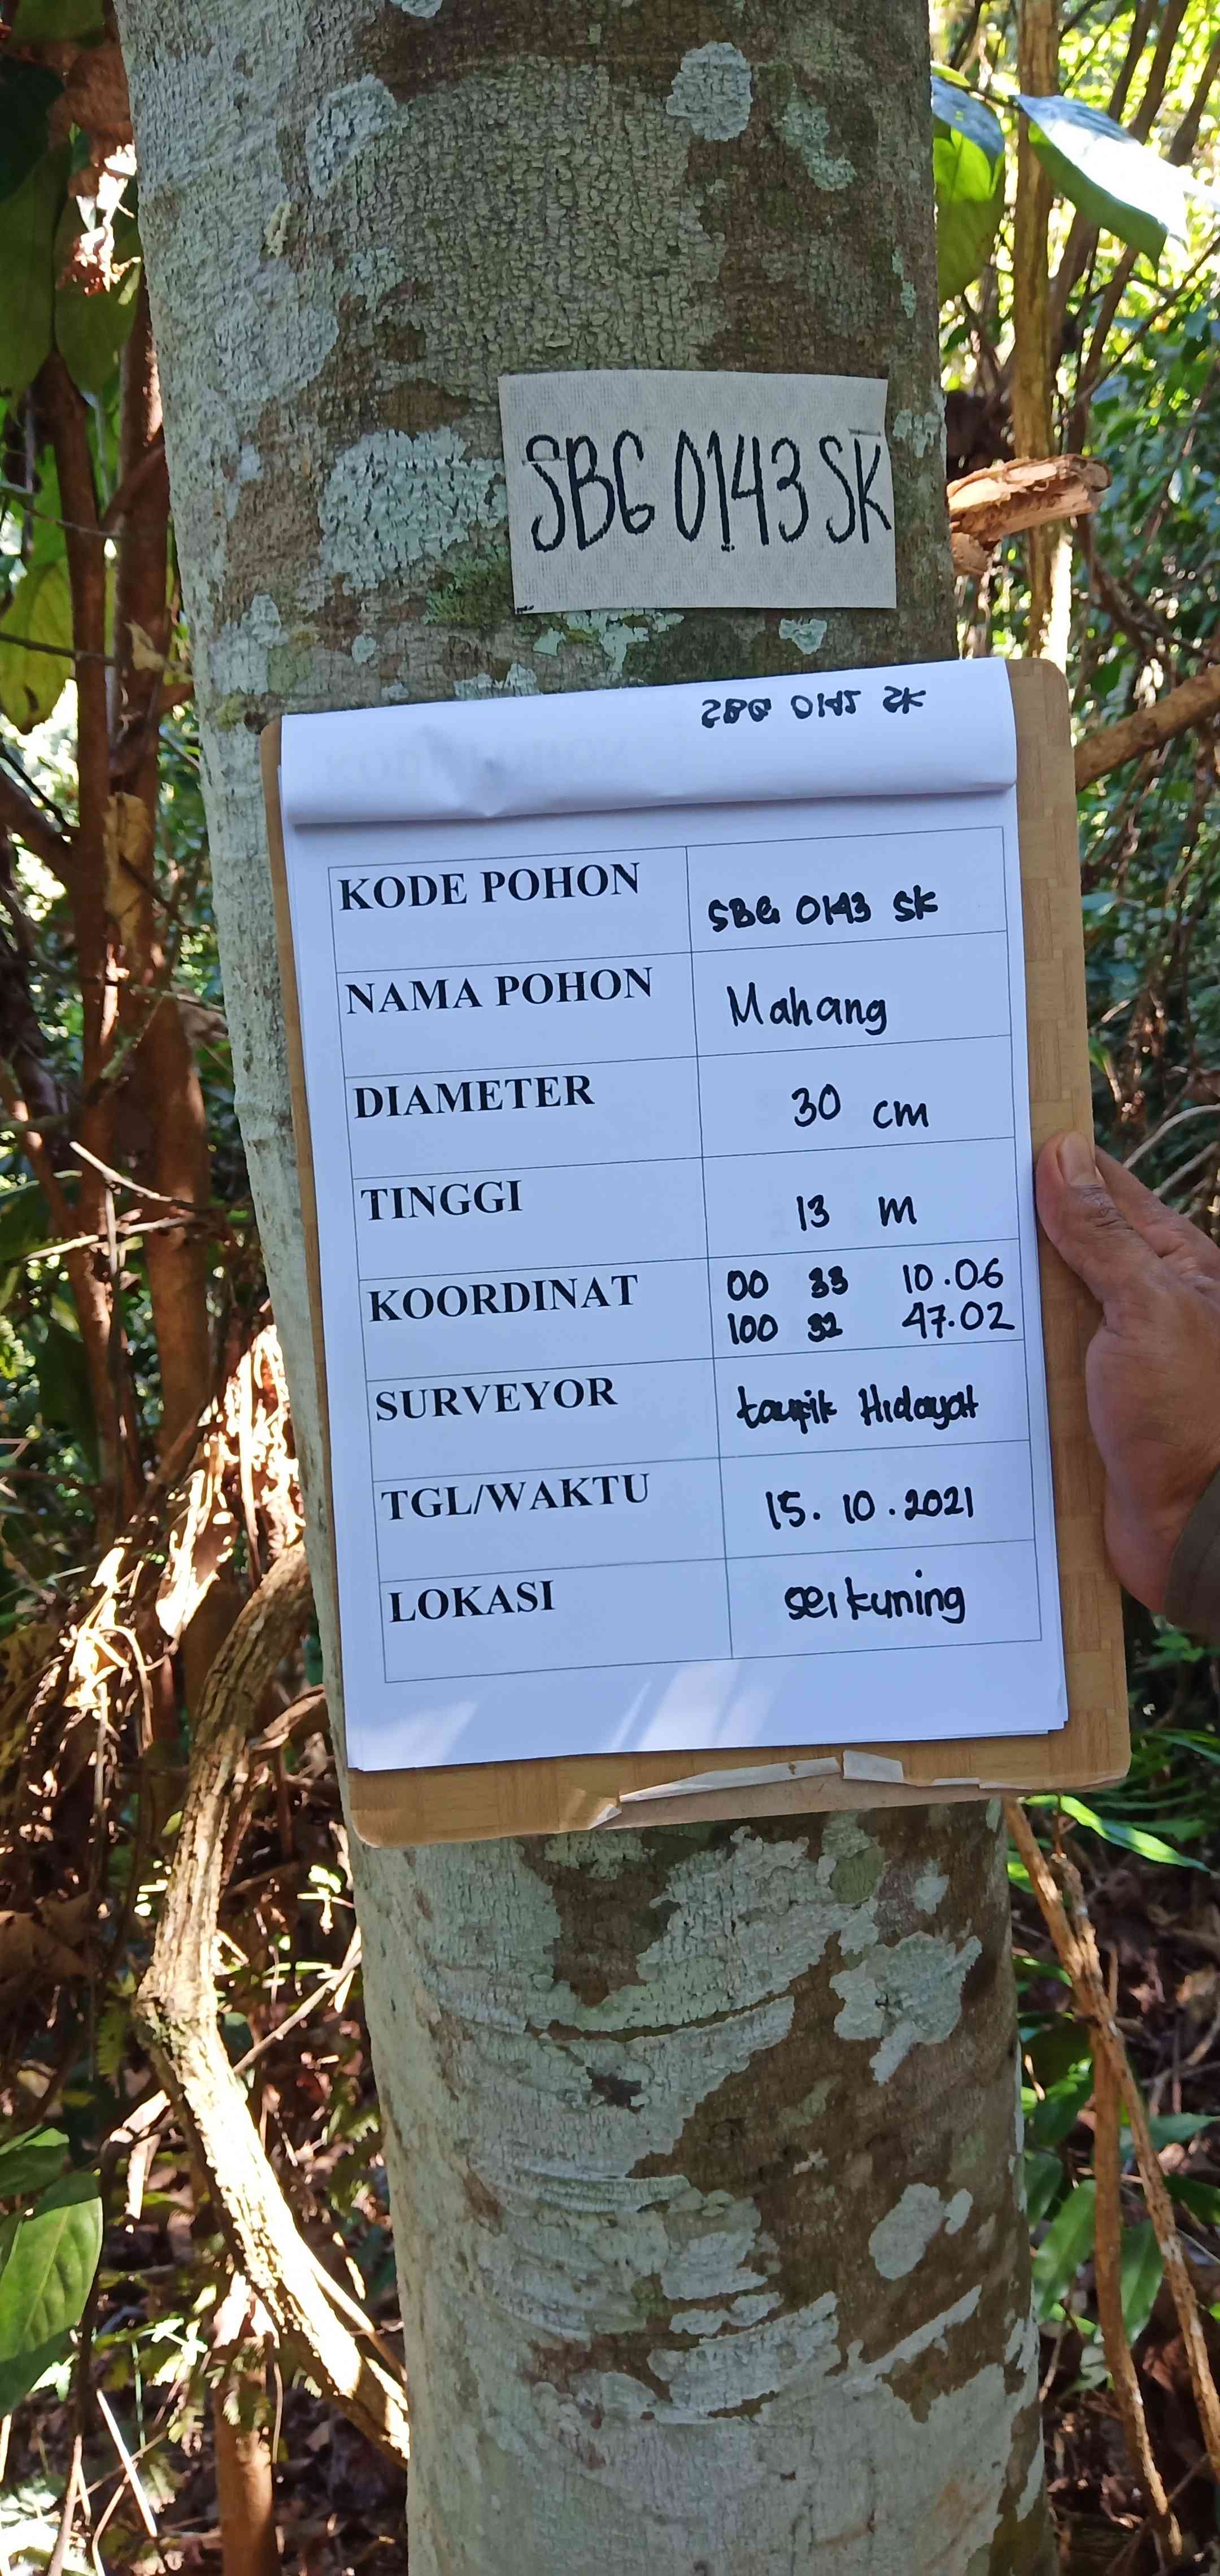 SBG 0143 SK
KODE POHON SBG 0143 SK
NAMA POHON Mahang
DIAMETER 30 cm
TINGGI 13 m
KOORDINAT 00 33 10.06
100 32 47.02
SURVEYOR taupik Hidayat
TGL/WAKTU 15.10.2021
LOKASI sei kuning